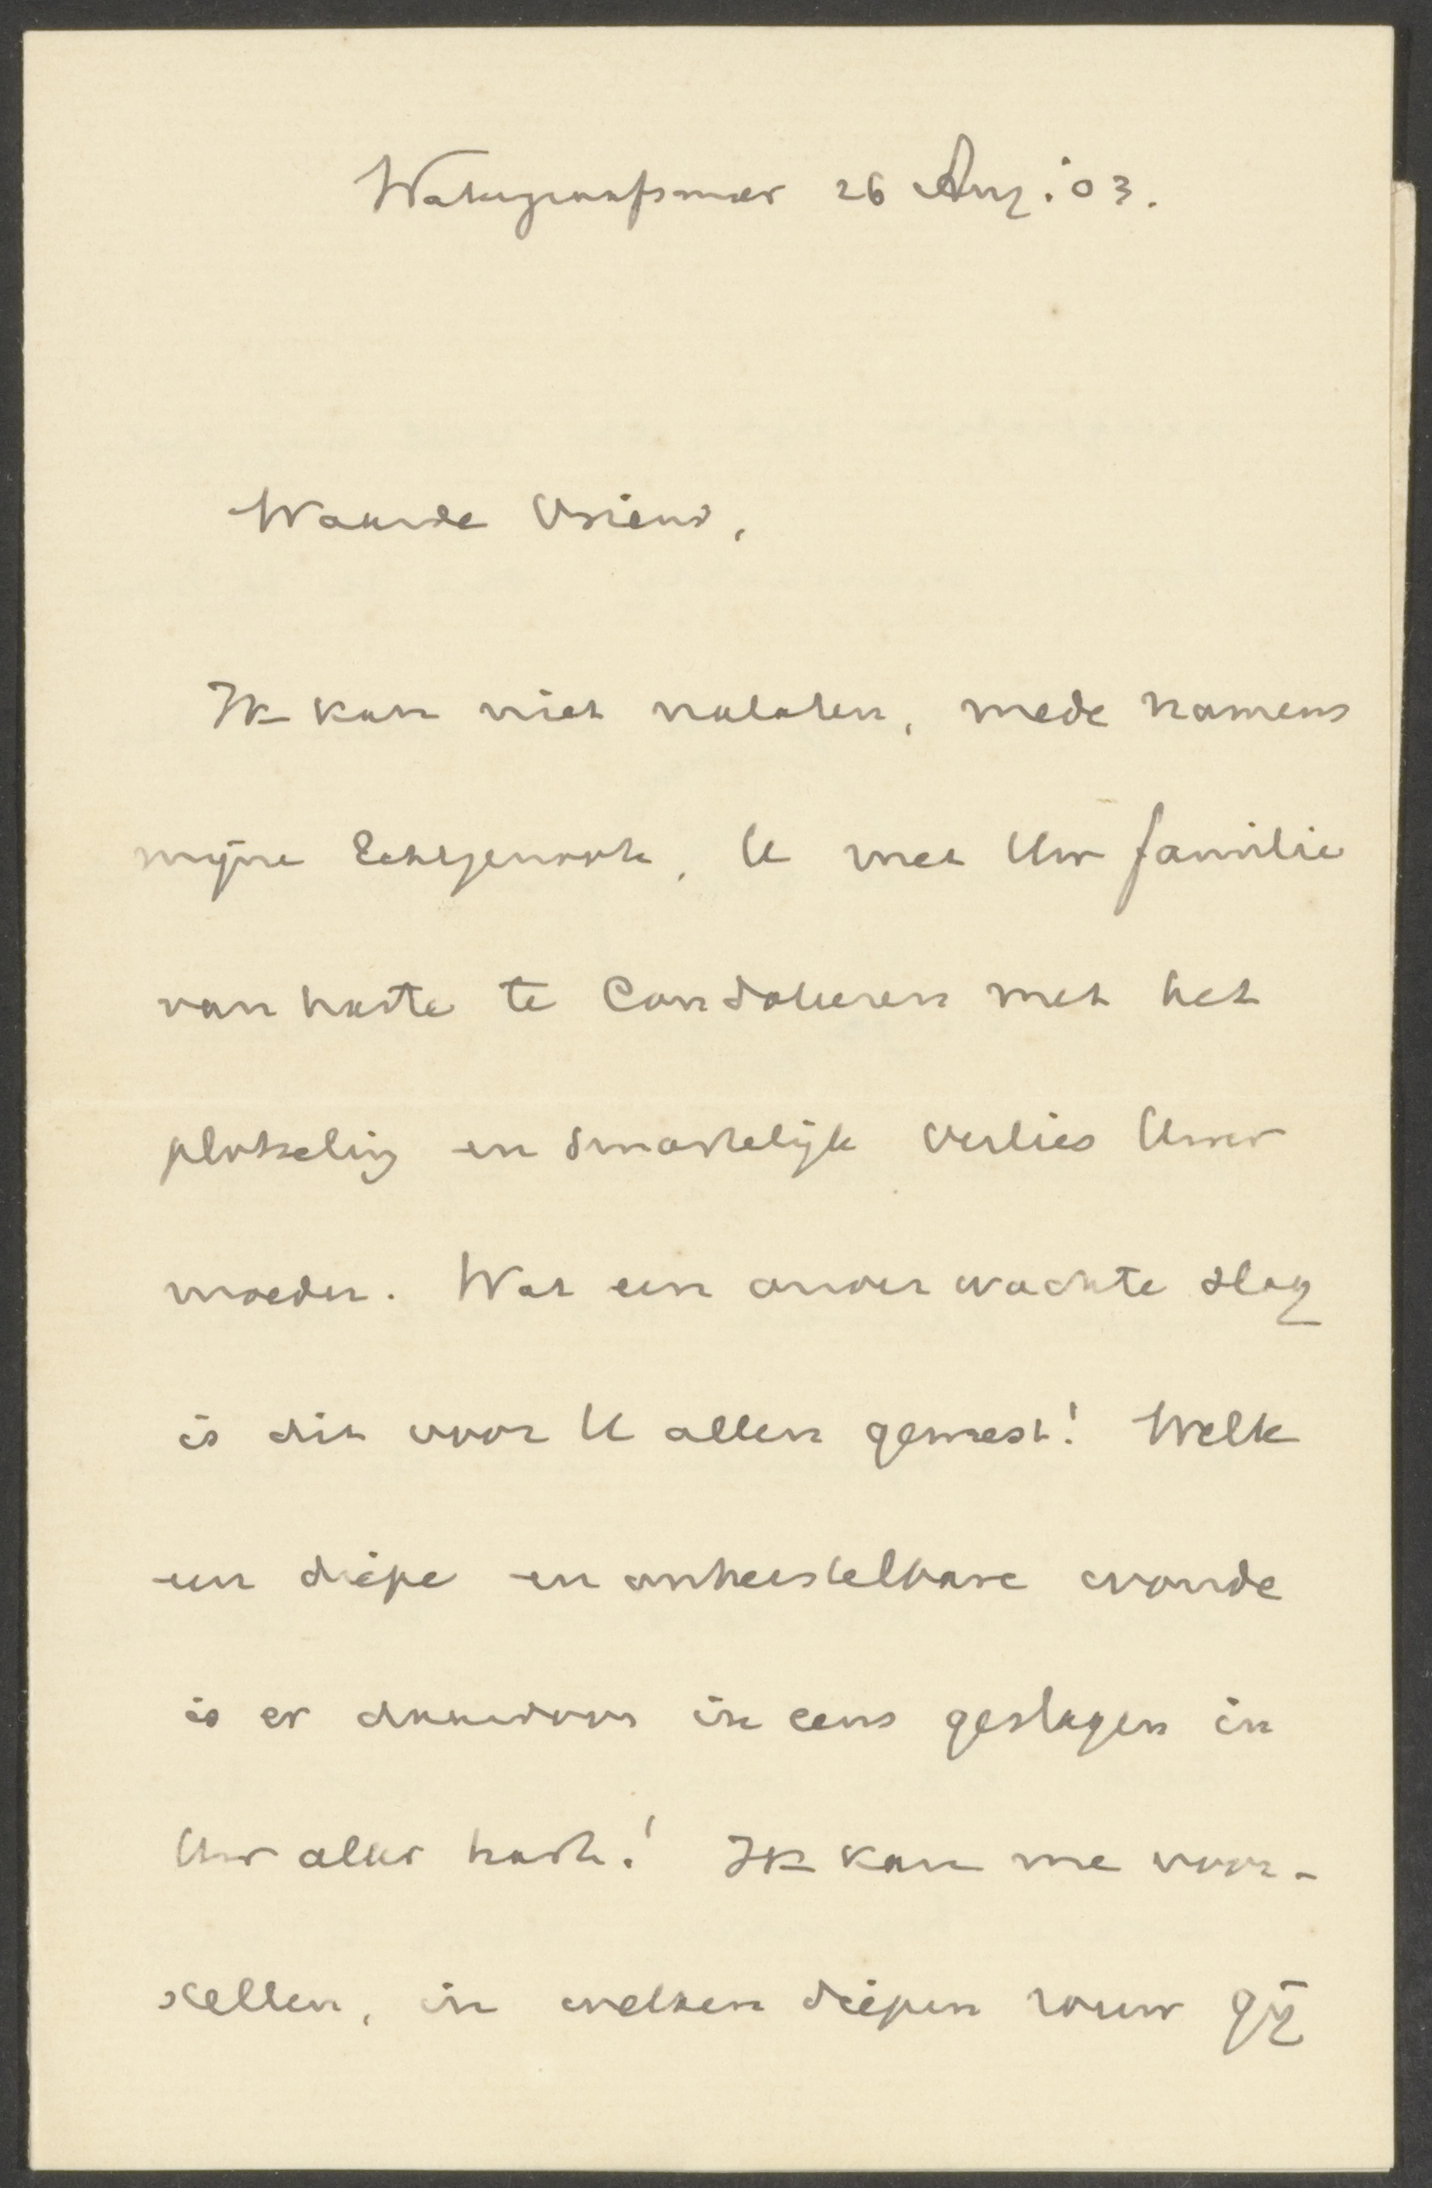 Watergraafsmeer 26 Aug. '03.
Waarde Vriend,
Ik kan niet nalaten, mede namens
mijne Echtgenoote, U met Uw familie
van harte te Condoleren met het
plotseling en smartelijk verlies Uwer
moeder. Wat een onverwachte slag
is dit voor U allen geweest! Welk
een diepe en onherstelbare wonde
is er daardoor in eens geslagen in
Uw aller hart! Ik kan me voor-
stellen, in welken diepen rouw gij